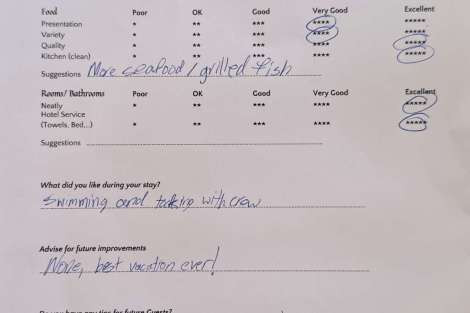 Food Poor OK Good Very Good Excellent
Presentation * ** *** **** *****
Variety * ** *** **** *****
Quality * ** *** **** *****
Kitchen (clean) * ** *** **** *****
Suggestions More seafood / grilled fish
Rooms/ Bathrooms Poor OK Good Very Good Excellent
Neatly * ** *** **** *****
Hotel Service
(Towels, Bed...) * ** *** **** *****
Suggestions
What did you like during your stay?
Swimming and talking with crew
Advise for future improvements
None, best vacation ever!
Do you have any tips for future Guests?